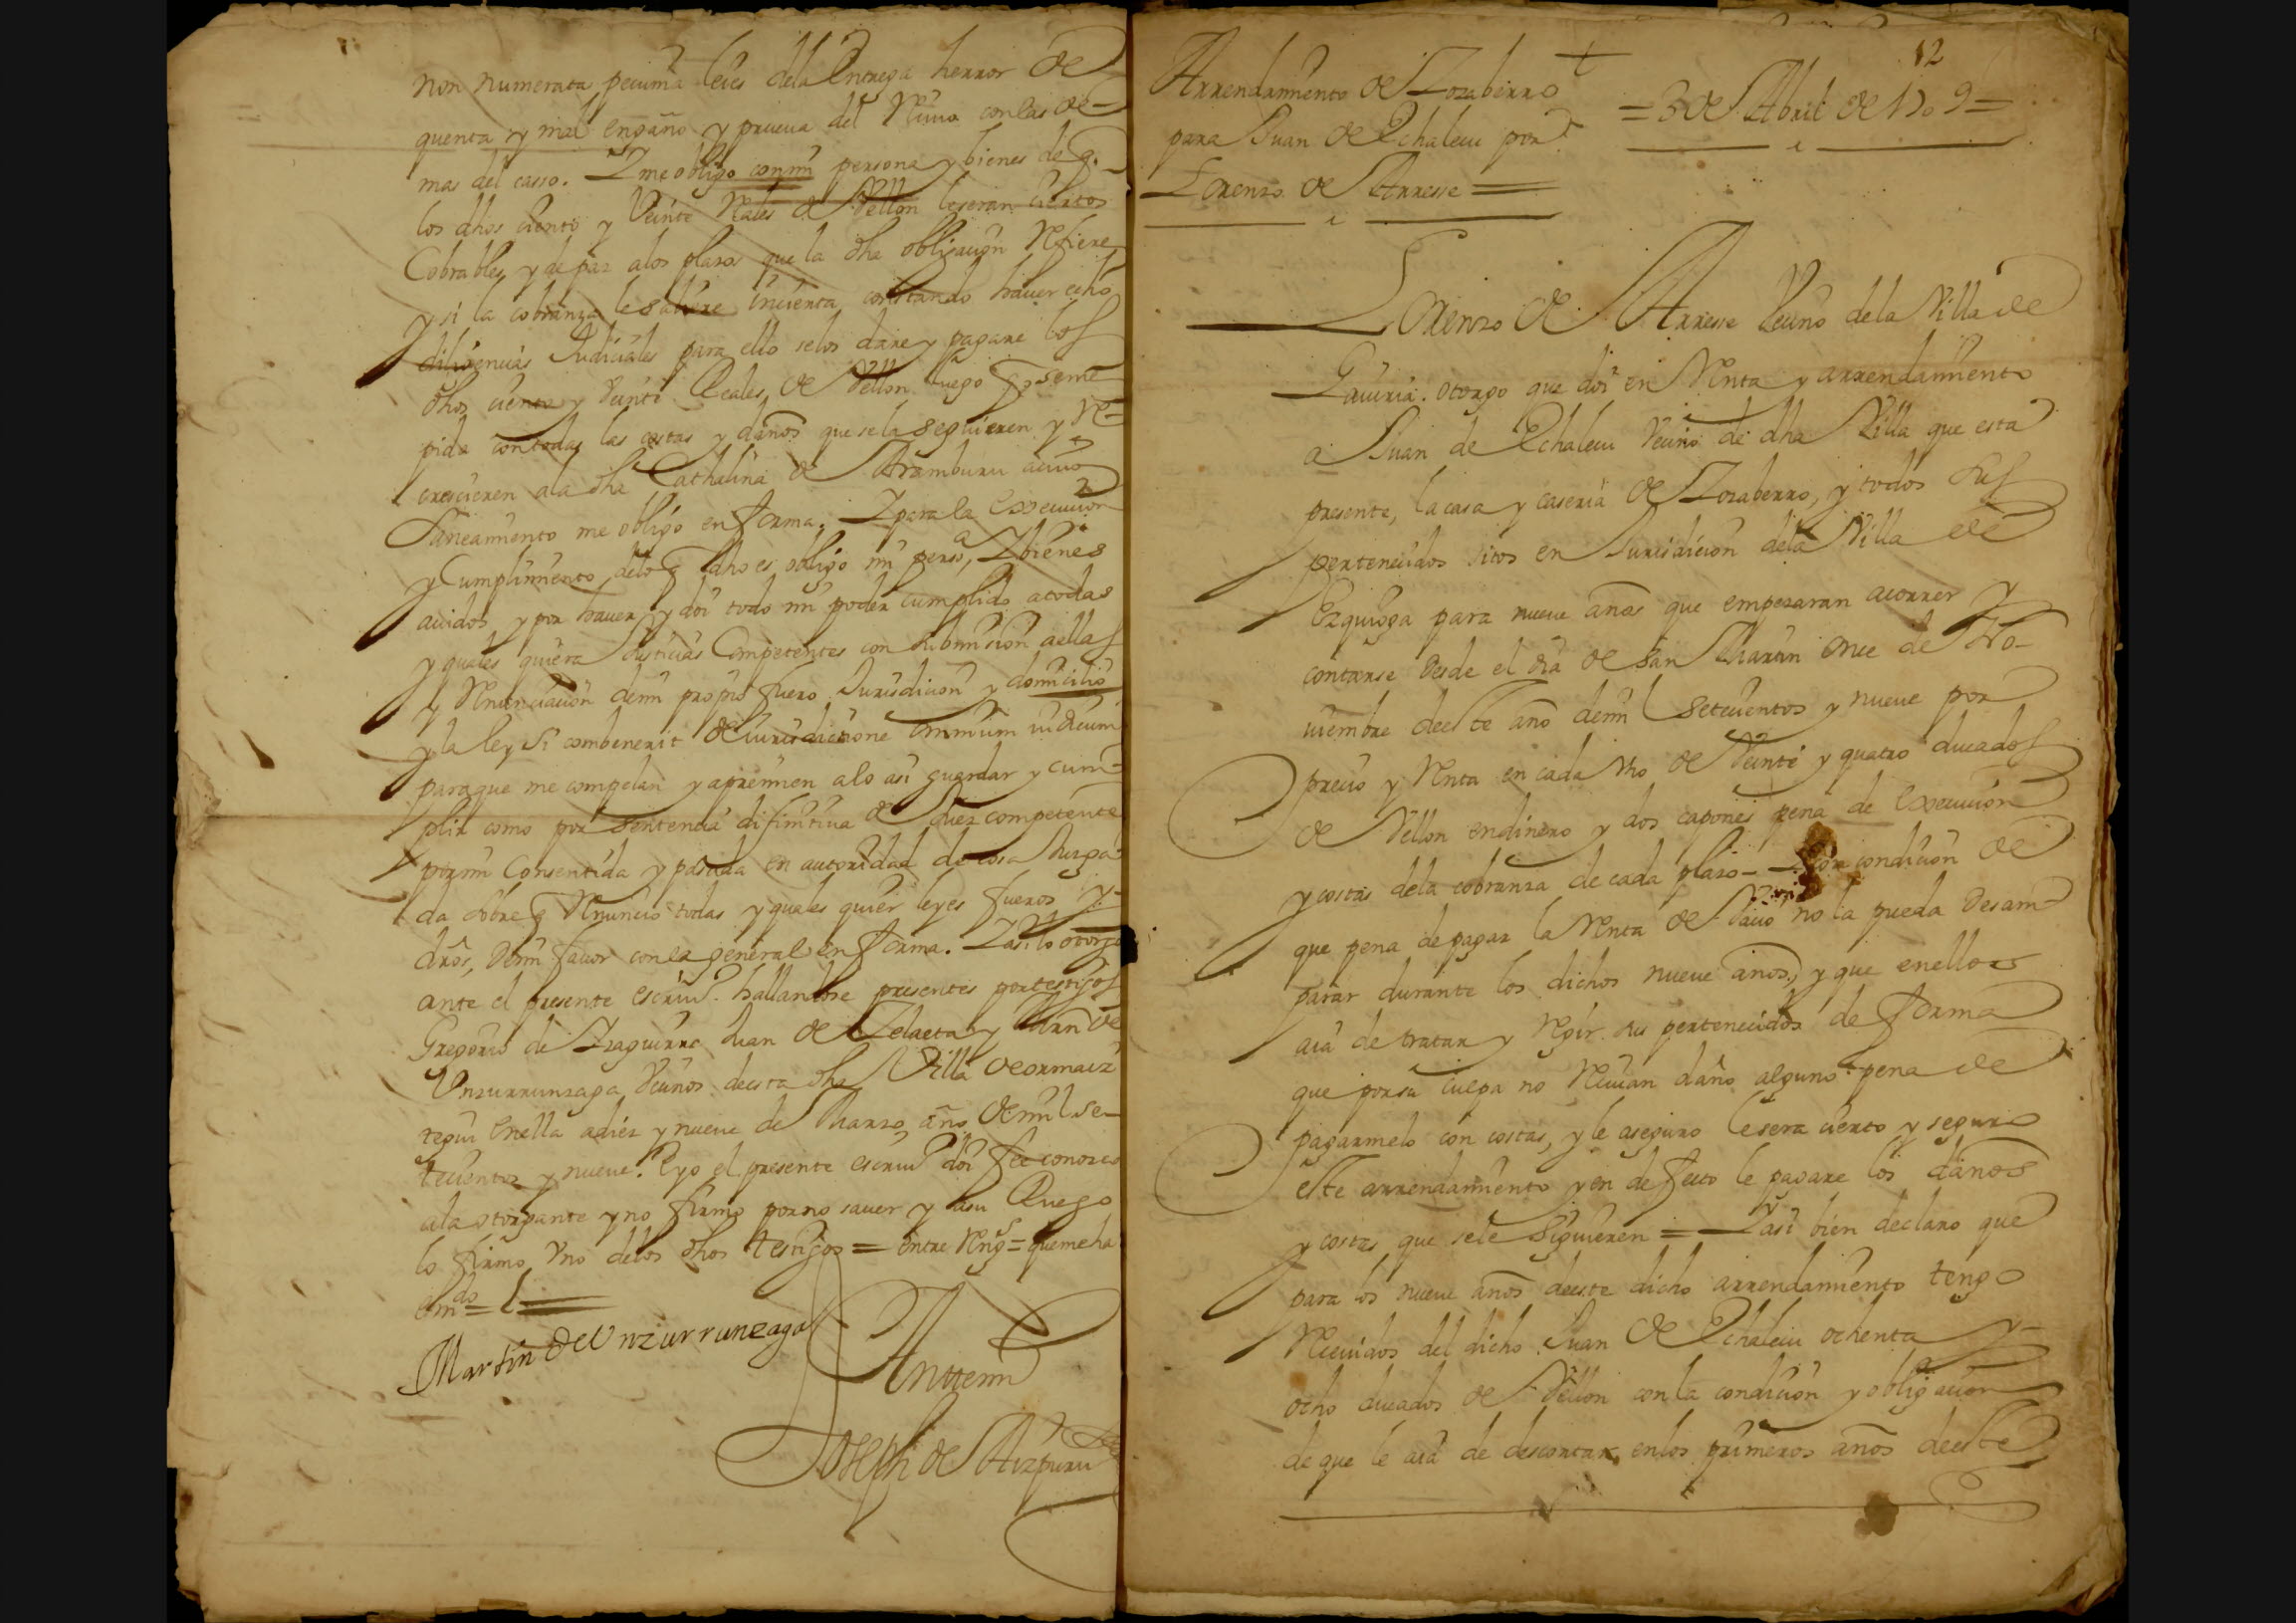 non numerata pecunia leies dela Entrega herror de
quenta y mal engaño y prueva del Reciuo con las de-
mas del casso. Y me obligo con mi persona y bienes de q.
los dhos ciento y Veinte Rales de Vellon le seran ciertos
Cobrables y de paz a los plazos que la dha obligacion Refiere
y si la cobranza le saliere incierta constando hauer echo
diligencias Judiciales para ello se los dare y pagare los
dhos ciento y Veinte Reales de Vellon luego q se me
pida con todas las costas y daños que se la seguieren y Re-
crescieren a la dha Cathalina de Aramburu a cuio
Saneamiento me obligo en forma. Y para la Execucion
y Cumplimiento delo q dho es obligo mi persa, Y bienes
auidos y por hauer y doi todo mi poder cumplido a todas
y quales quiera Justicias Competentes con submision a ellas
y Renunciacion de mi propio fuero Jurisdicion y domicilio
y la ley si combenerit de iurisdictione omnium iudicum
para que me compelan y apremien a lo asi guardar y cum-
plir como por sentencia difinitiua de Juez competente
por mi Consentida y pasada en autoridad de cosa Juzga-
da sobre q Renuncio todas y quales quier leyes fueros y-
dros, de mi fauor con la general en forma. Y asi lo otorgo
ante el presente escriu.º hallandose presentes por testigos
Gregorio de Izaguirre Juan de Zelaeta y Mrn de
Unzurrunzaga Vecinos de esta dha Villa de ormaiz
tegui en ella a diez y nueve de Marzo año de mil se-
tecientos y nueve. E yo el presente escriu.º doi fee conozco
a la otorgante y no firmo por no sauer y a su Ruego
lo firmo Vno delos dhos testigos = entre Rengs = que me ha
emdo = l =
Martin de Unzurrunzaga
Antte mi
Joseph de Aizpuru
12
Arrendamiento de Lozaberro
para Juan de Echalecu por
Lorenzo de Arresse =
= 3 de Abril de 1709 =
Lorenzo de Arresse Vecino dela Villa de
Gauiria. otorgo que doi en Renta y arrendamiento
a Juan de Echalecu Vecino de dha Villa que esta
presente, la casa y caseria de Lozaberro, y todos sus
pertenecidos sitos en Jurisdicion dela Villa de
Ezquioga para nueve años que empezaran acorrer y
contarse desde el dia de San Martin once de No-
uiembre deeste año de mil setecientos y nueve por
precio y Renta en cada Vno de Veinte y quatro ducados
de Vellon en dinero y dos capones pena de Execucion
y costas dela cobranza de cada plazo - con condicion de
que pena de pagar la Renta de Vacio no la pueda desam-
parar durante los dichos nueve años, y que en ellos
aia de tratar y Regir sus pertenecidos de forma
que por su culpa no Reciuan daño alguno pena de
pagarmelo con costas, y le aseguro le sera cierto y seguro
este arrendamiento y en defecto le pagare los daños
y costas que sele siguieren = Y asi bien declaro que
para los nueve años deeste dicho arrendamiento tengo
Reciuidos del dicho Juan de Echalecu ochenta y-
ocho ducados de Vellon con la condicion y obligacion
de que le aia de descontar en los primeros años deeste